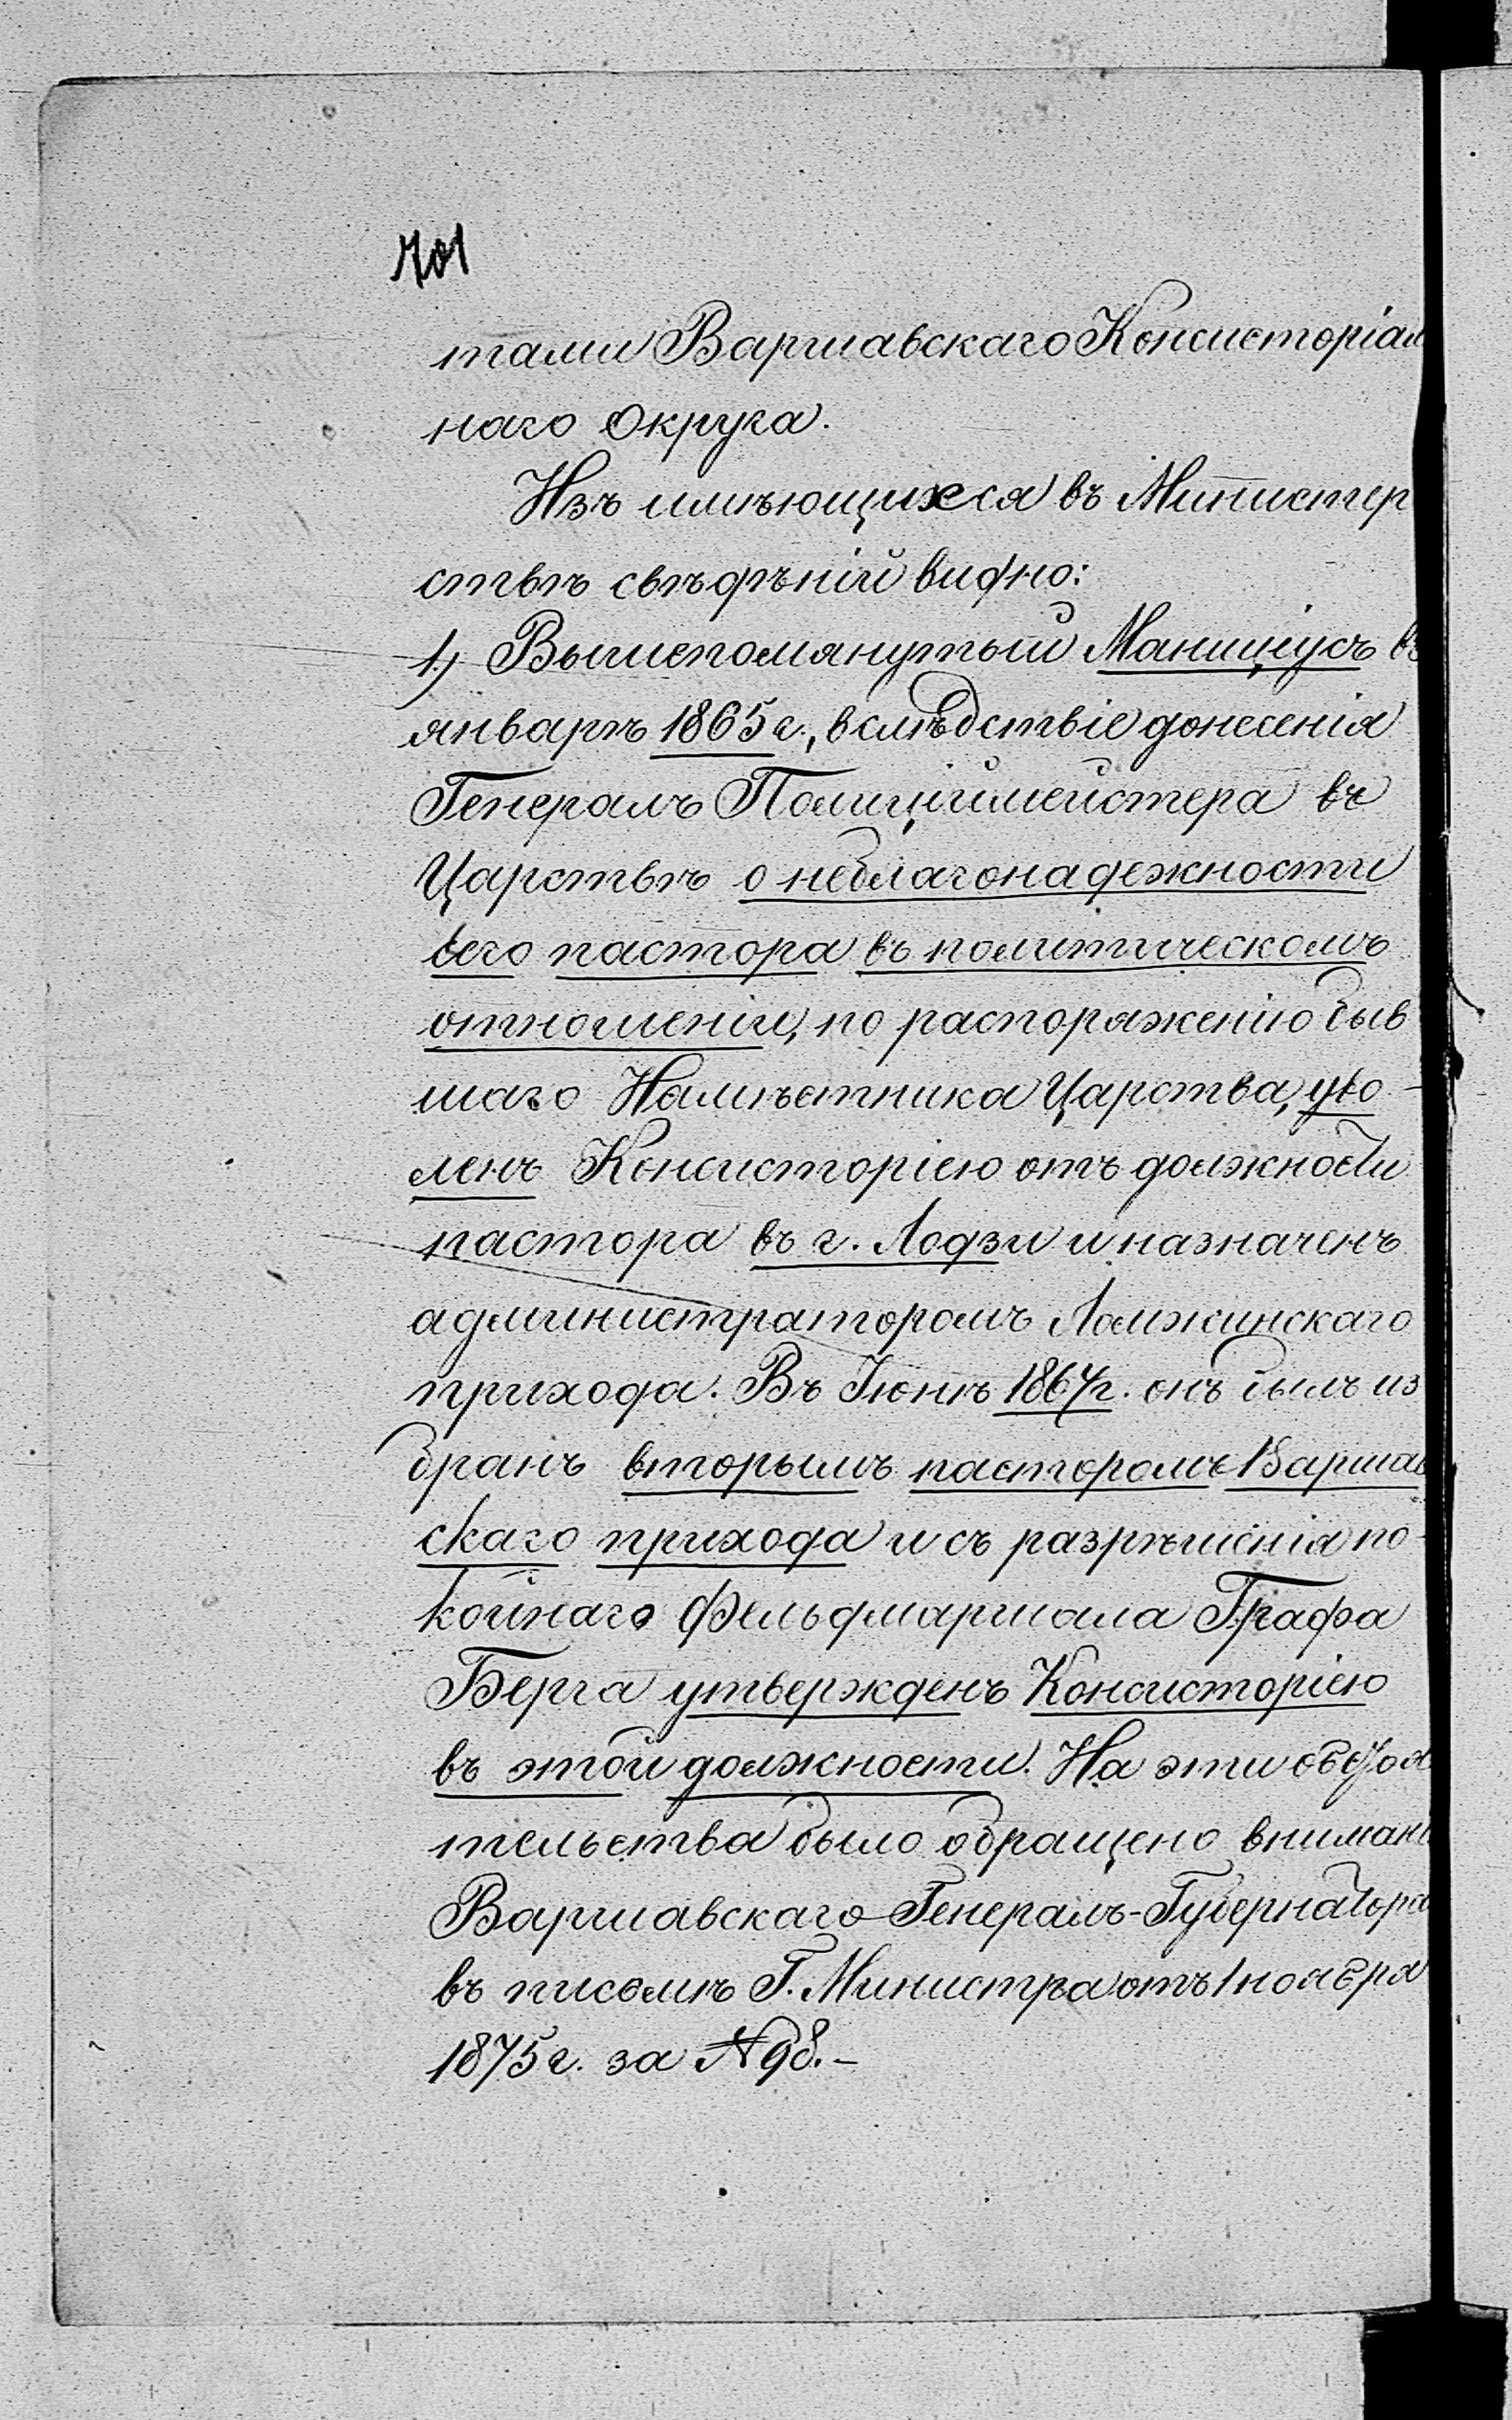 701
тами Варшавскаго Консисторіал
наго Округа.
Изъ имѣющихся въ Министер
ствѣ свѣдѣній видно:
1) Вышепомянутый Маниціусъ въ
январѣ 1865 г., вслѣдствіе донесенія
Генералъ Полиціймейстера въ
Царствѣ о неблагонадежности
сего пастора въ политическомъ
отношеніи, по распоряженію быв
шаго Намѣстника Царства, уво-
ленъ Консисторіею отъ должности
пастора въ г. Лодзи и назначенъ
администраторомъ Ломжинскаго
прихода. Въ Іюнѣ 1867 г. онъ былъ из
бранъ вторымъ пасторомъ Варшав
скаго прихода и съ разрѣшенія по-
койнаго Фельдмаршала Графа
Берга утвержденъ Консисторіею
въ этой должности. На эти обстоя
тельства было обращено вниманi
Варшавскаго Генералъ-Губернатора
въ письмѣ Г. Министра отъ 1 ноября
1875 г. за № 98.-